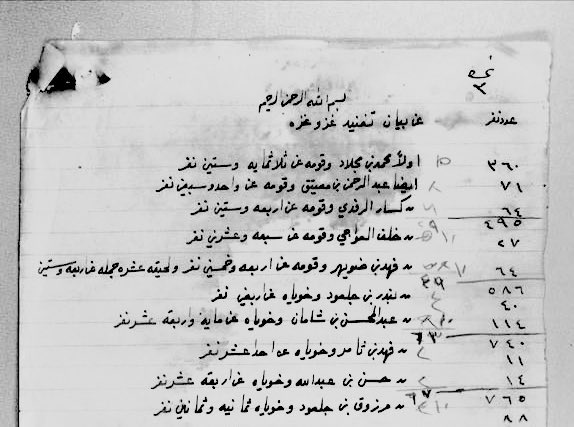 نمره
٣
بسم الله الرحمن الرحيم
عدد نفر عن بيان تفنيد غزو عنزه
٣٦٠ اولاً محمد بن مجلاد وقومه عن ثلاثمايه وستين نفر ١٥
٧١ ايضا عبد الرحمن بن معيتق وقومه عن واحد وسبعين نفر ٨
٦٤ كسار الرفدي وقومه عن اربعه وستين نفر
٤٩٥
٢٧ خلف العواجي وقومه عن سبعه وعشرين نفر
٦٤ فهد بن ضويهر وقومه عن اربعه وخمسين نفر ولحيقه عشره جمله عن اربعه وستين
٥٨٦
٤٠ بندر بن جلعود وخوياه عن اربعين نفر
١١٤ عبد المحسن بن شامان وخوياه عن مايه واربعة عشر نفر
٧٤٠
١١ فهد بن ثامر وخوياه عن احد عشر نفر
١٤ حسن بن عبد الله وخوياه عن اربعة عشر نفر
٧٦٥
٨٨ مرزوق بن جلعود وخوياه ثمانيه وثمانين نفر